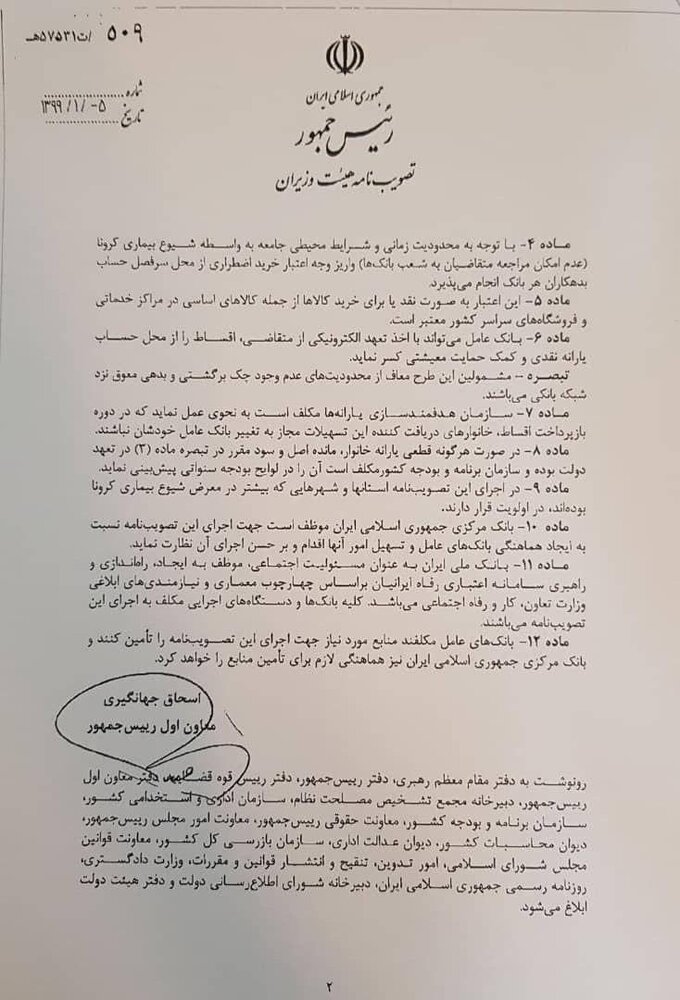 ۵۰۹ /ت۵۷۵۳۱هـ
شماره
تاریخ ۱۳۹۹/۱/۰۵
جمهوری اسلامی ایران
رئیس جمهور
تصویب نامه هیئت وزیران
ماده ۴- با توجه به محدودیت زمانی و شرایط محیطی جامعه به واسطه شیوع بیماری کرونا
(عدم امکان مراجعه متقاضیان به شعب بانک‌ها) واریز وجه اعتبار خرید اضطراری از محل سرفصل حساب
بدهکاران هر بانک انجام می‌پذیرد.
ماده ۵- این اعتبار به صورت نقد یا برای خرید کالاها از جمله کالاهای اساسی در مراکز خدماتی
و فروشگاه‌های سراسر کشور معتبر است.
ماده ۶- بانک عامل می‌تواند با اخذ تعهد الکترونیکی از متقاضی، اقساط را از محل حساب
یارانه نقدی و کمک حمایت معیشتی کسر نماید.
تبصره – مشمولین این طرح معاف از محدودیت‌های عدم وجود چک برگشتی و بدهی معوق نزد
شبکه بانکی می‌باشند.
ماده ۷- سازمان هدفمندسازی یارانه‌ها مکلف است به نحوی عمل نماید که در دوره
بازپرداخت اقساط، خانوارهای دریافت کننده این تسهیلات مجاز به تغییر بانک عامل خودشان نباشند.
ماده ۸- در صورت هرگونه قطعی یارانه خانوار، مانده اصل و سود مقرر در تبصره ماده (۳) در تعهد
دولت بوده و سازمان برنامه و بودجه کشورمکلف است آن را در لوایح بودجه سنواتی پیش‌بینی نماید.
ماده ۹- در اجرای این تصویب‌نامه استانها و شهرهایی که بیشتر در معرض شیوع بیماری کرونا
بوده‌اند، در اولویت قرار دارند.
ماده ۱۰- بانک مرکزی جمهوری اسلامی ایران موظف است جهت اجرای این تصویب‌نامه نسبت
به ایجاد هماهنگی بانک‌های عامل و تسهیل امور آنها اقدام و بر حسن اجرای آن نظارت نماید.
ماده ۱۱- بانک ملی ایران به عنوان مسئولیت اجتماعی، موظف به ایجاد، راه‌اندازی و
راهبری سامانه اعتباری رفاه ایرانیان براساس چهارچوب معماری و نیازمندی‌های ابلاغی
وزارت تعاون، کار و رفاه اجتماعی می‌باشد. کلیه بانک‌ها و دستگاه‌های اجرایی مکلف به اجرای این
تصویب‌نامه می‌باشند.
ماده ۱۲- بانک‌های عامل مکلفند منابع مورد نیاز جهت اجرای این تصویب‌نامه را تأمین کنند و
بانک مرکزی جمهوری اسلامی ایران نیز هماهنگی لازم برای تأمین منابع را خواهد کرد.
اسحاق جهانگیری
معاون اول رییس‌جمهور
رونوشت به دفتر مقام معظم رهبری، دفتر رییس‌جمهور، دفتر رییس قوه دفتر معاون اول
رییس‌جمهور، دبیرخانه مجمع تشخیص مصلحت نظام، سازمان اداری و استخدامی کشور،
سازمان برنامه و بودجه کشور، معاونت حقوقی رییس‌جمهور، معاونت امور مجلس رییس‌جمهور،
دیوان محاسبات کشور، دیوان عدالت اداری، سازمان بازرسی کل کشور، معاونت قوانین
مجلس شورای اسلامی، امور تدوین، تنقیح و انتشار قوانین و مقررات، وزارت دادگستری،
روزنامه رسمی جمهوری اسلامی ایران، دبیرخانه شورای اطلاع‌رسانی دولت و دفتر هیئت دولت
ابلاغ می‌شود.
۲